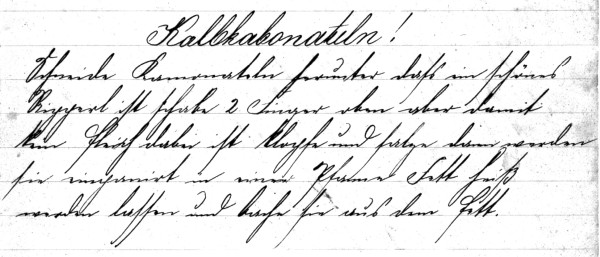 Kalbkabonateln!
Schneide Kamonateln herunter daß ein schönes
Ripperl ist schabe 2 Finger oben aber damit
kein Fleisch dabei ist klopfe und salze dann werden
sie einpanirt in einer Pfanne Fett heiß
werden lassen und backe sie aus dem Fett.